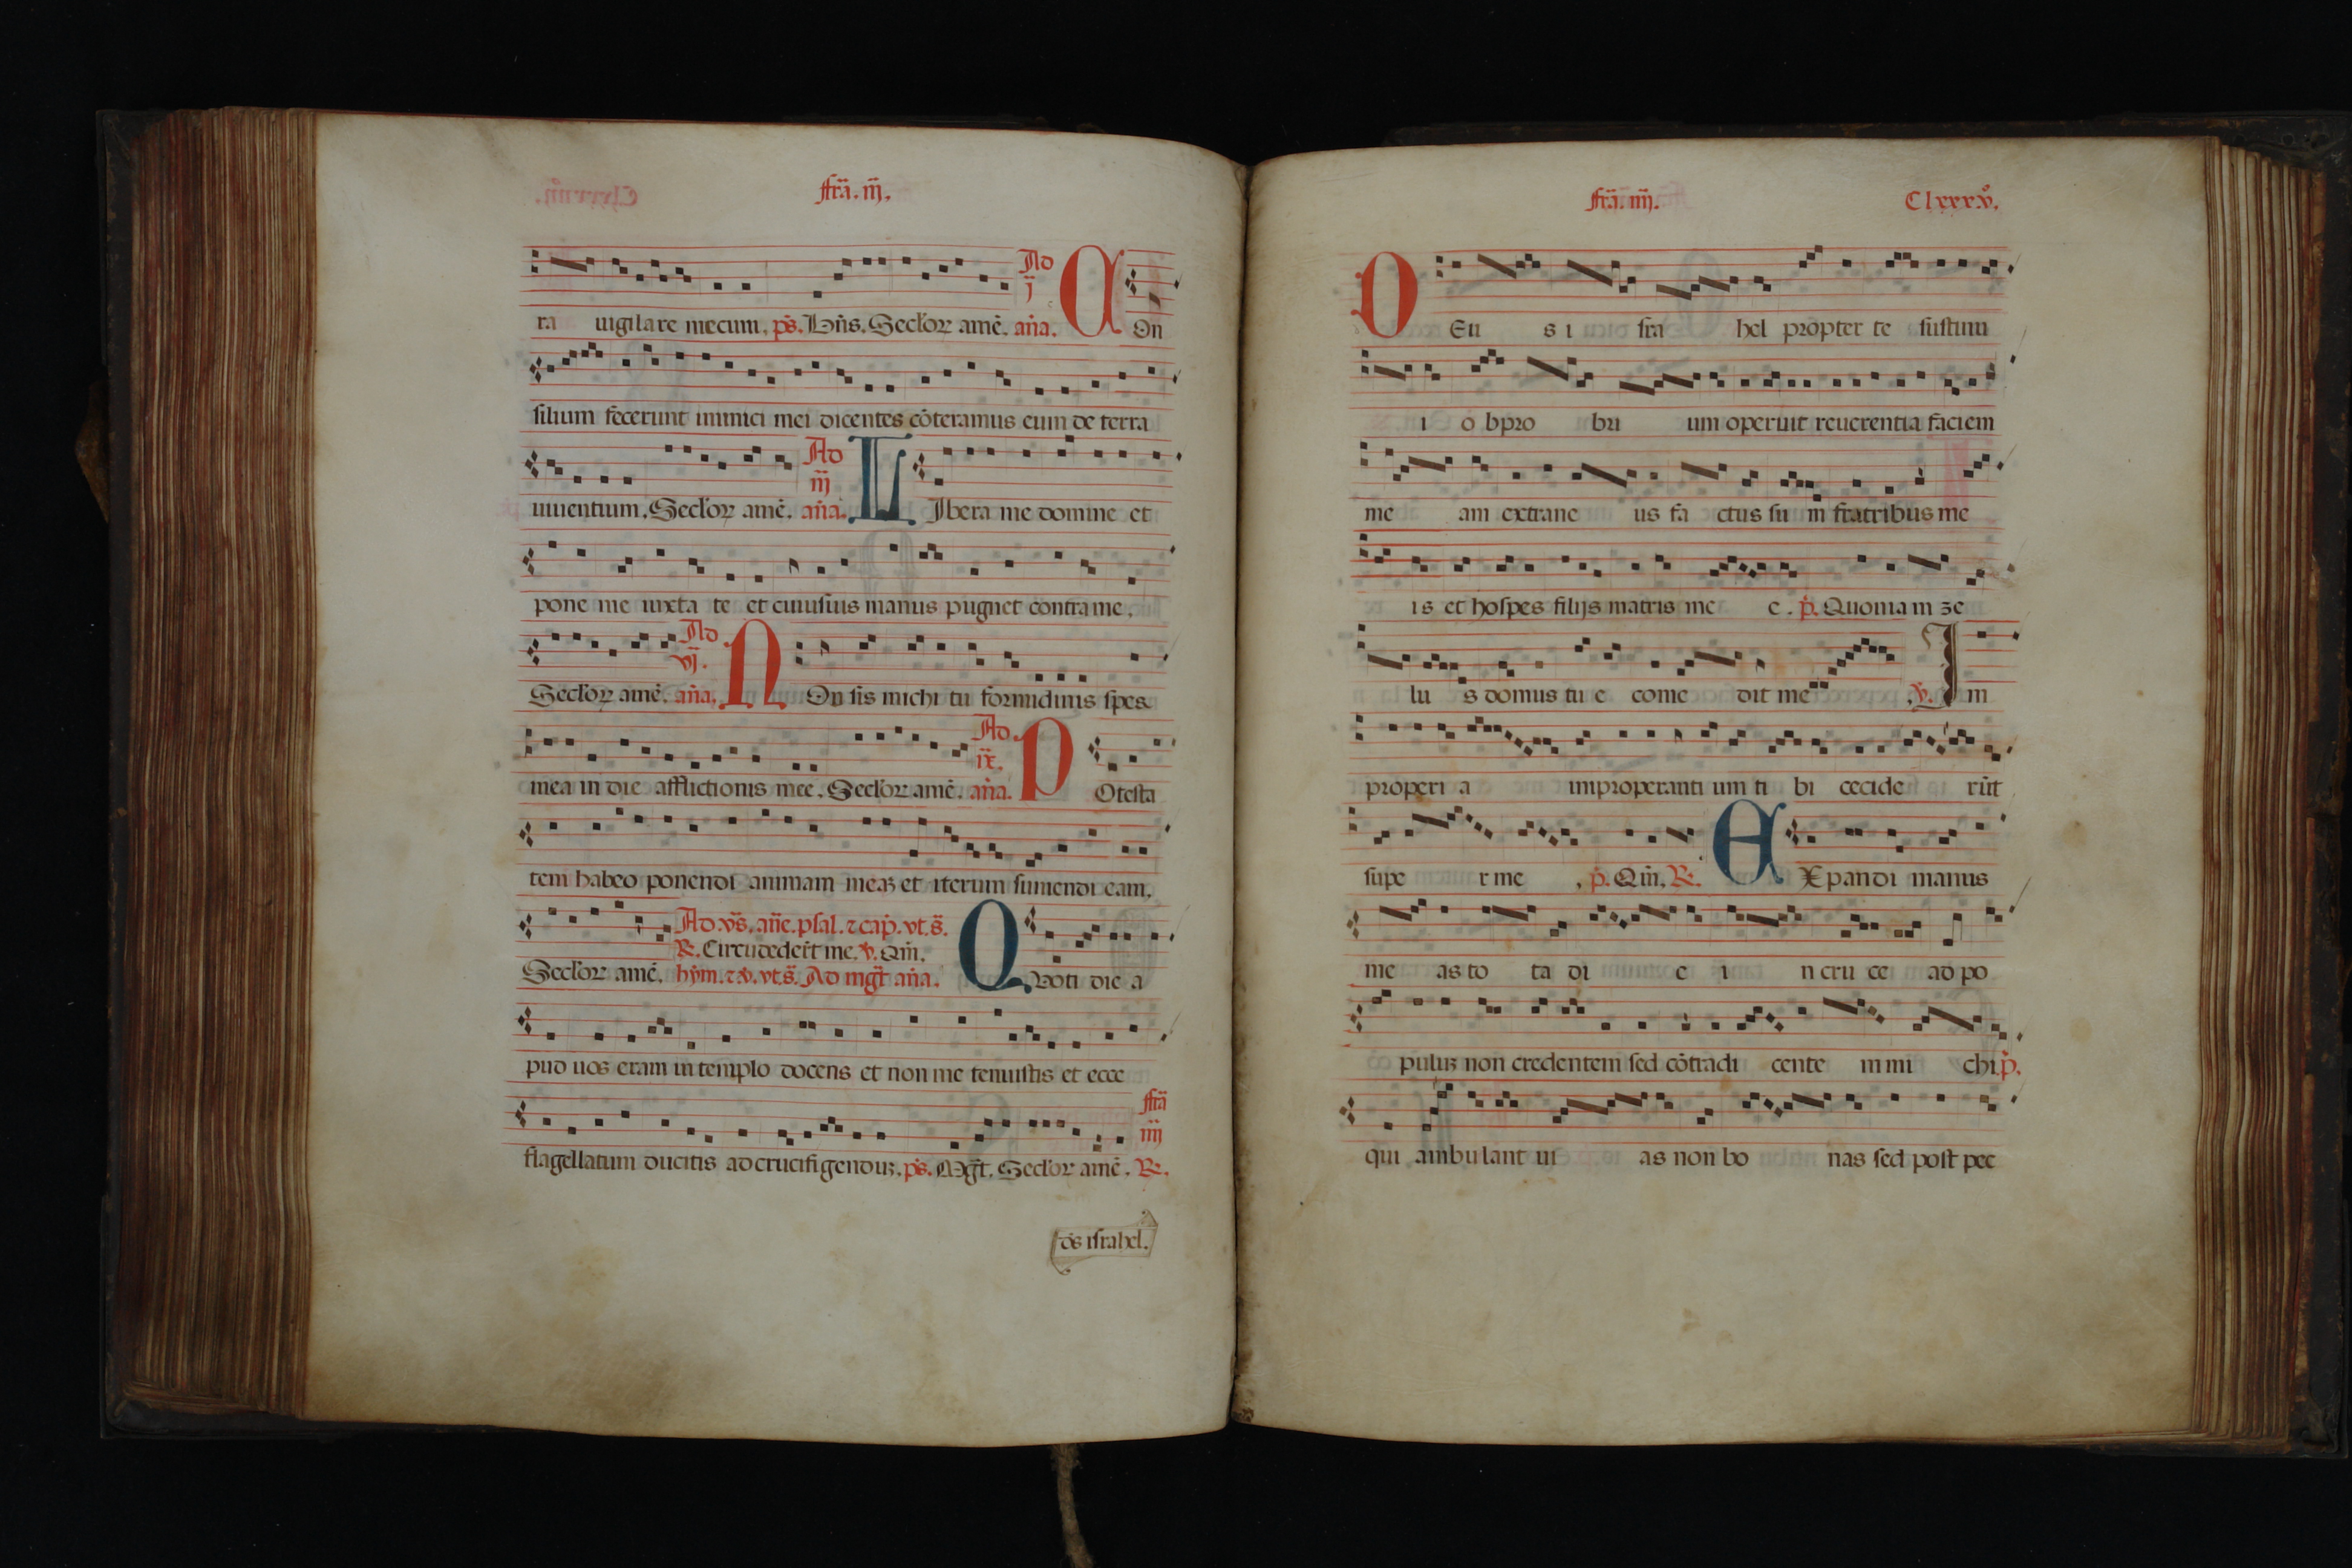 fr̃a. iij̃.
ra uigilare mecum. p̃s. Bñs. Secl'oꝝ amẽ. Ad j̃ aña. COn
silium fecerunt inimici mei dicentes cõteramus eum de terra
uiuentium. Secl'oꝝ amẽ. Ad iij̃ aña. LIbera me domine et
pone me iuxta te et cuiusuis manus pugnet contra me.
Secl'oꝝ amẽ. Ad vj̃. aña. NOn sis michi tu formidinis spes
mea in die afflictionis mee. Secl'oꝝ amẽ. Ad ix̃. aña. POtesta
tem habeo ponendi animam meaꝫ et iterum sumendi eam.
Ad. vs̃. añe. psal. ⁊ cap̃. vt. s̃.
℟. Circũdeder̃t me. ℣. Qm̃.
Secl'oꝝ amẽ. hym̃. ⁊ ℣. vt. s̃. Ad mgt̃ aña. QVoti die a
pud uos eram in templo docens et non me tenuistis et ecce
flagellatum ducitis ad crucifigenduꝫ. p̃s. Mgt̃. Secl'oꝝ amẽ. fr̃a iiij̃ ℟.
ds̃ israhel.
fr̃a. iiij̃.
Clxxxvº.
DEu s i sra hel propter te sustinu
i o bpro bri um operuit reuerentia faciem
me am extrane us fa ctus su m fratribus me
is et hospes filijs matris me e. p̃. Quonia m ze
lu s domus tu e come dit me. ℣. I m
properi a improperanti um ti bi cecide rũt
supe r me. p̃. Qm̃. ℟. EXpandi manus
me as to ta di e i n cru ce ad po
puluꝫ non credentem sed cõtradi cente m mi chi. p̃.
qui ambulant ui as non bo nas sed post pec